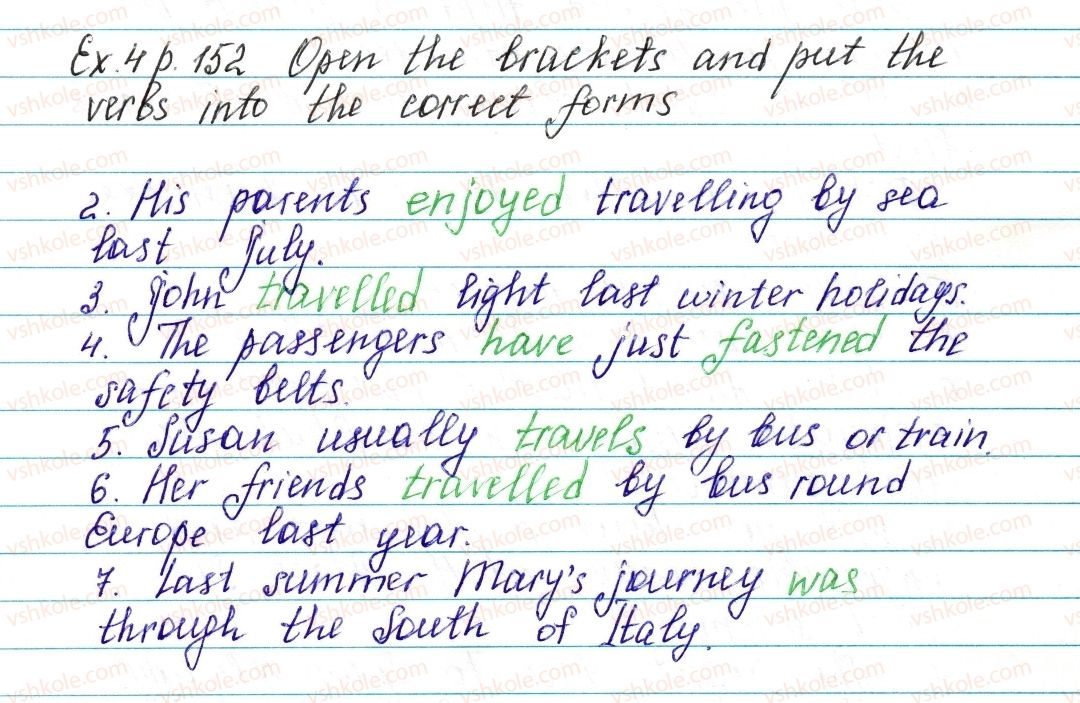 Ex. 4 p. 152 Open the brackets and put the
verbs into the correct forms
2. His parents enjoyed travelling by sea
last July.
3. John travelled light last winter holidays.
4. The passengers have just fastened the
safety belts.
5. Susan usually travels by bus or train.
6. Her friends travelled by bus round
Europe last year.
7. Last summer Mary's journey was
through the South of Italy.